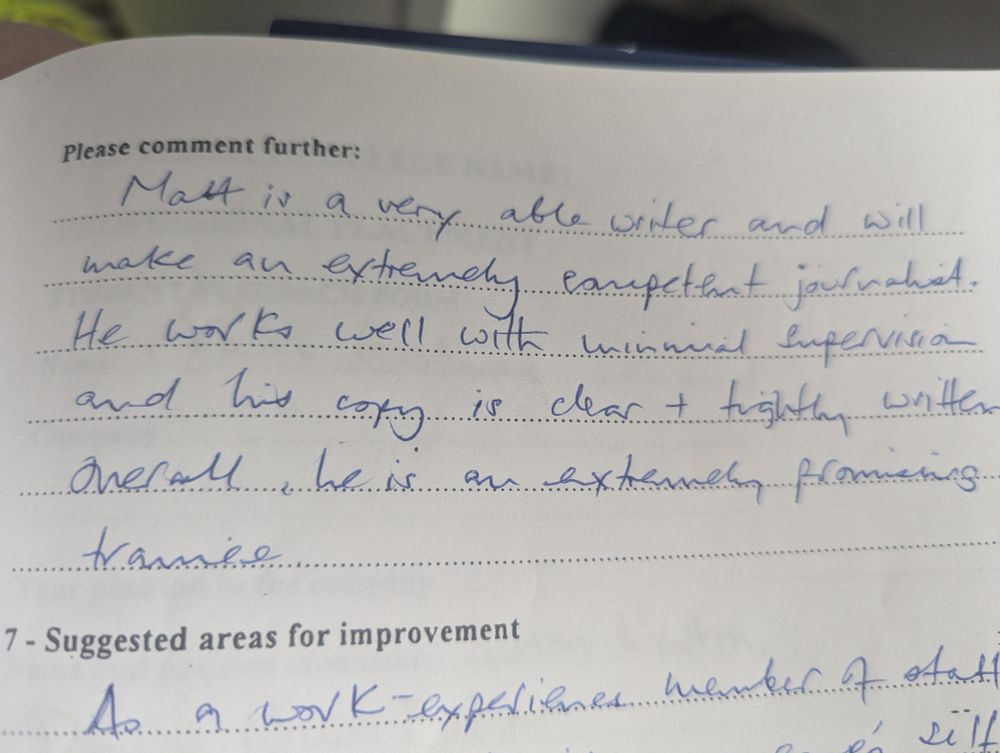 Please comment further:
Matt is a very able writer and will
make an extremely competent journalist.
He works well with minimal supervision
and his copy is clear + tightly written
Overall, he is an extremely promising
trainee.
7 - Suggested areas for improvement
As a work-experience member of staff